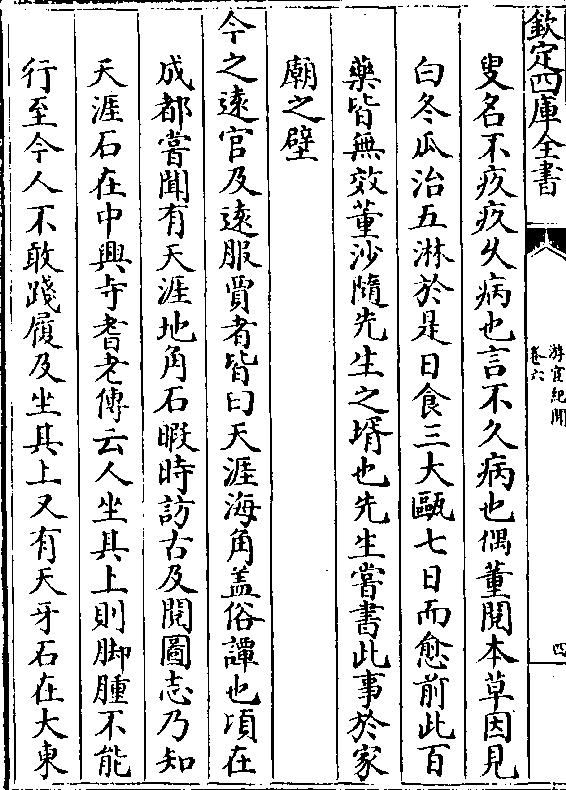 欽定四庫全書
游宦紀聞
卷六
四
叟名不疚疚久病也言不久病也偶董閱本草因見
白冬瓜治五淋於是日食三大甌七日而愈前此百
藥皆無效董沙隨先生之壻也先生嘗書此事於家
廟之壁
今之遠官及遠服賈者皆曰天涯海角盖俗譚也頃在
成都嘗聞有天涯地角石暇時訪古及閱圖志乃知
天涯石在中興寺耆老傳云人坐其上則脚腫不能
行至今人不敢踐履及坐其上又有天牙石在大東